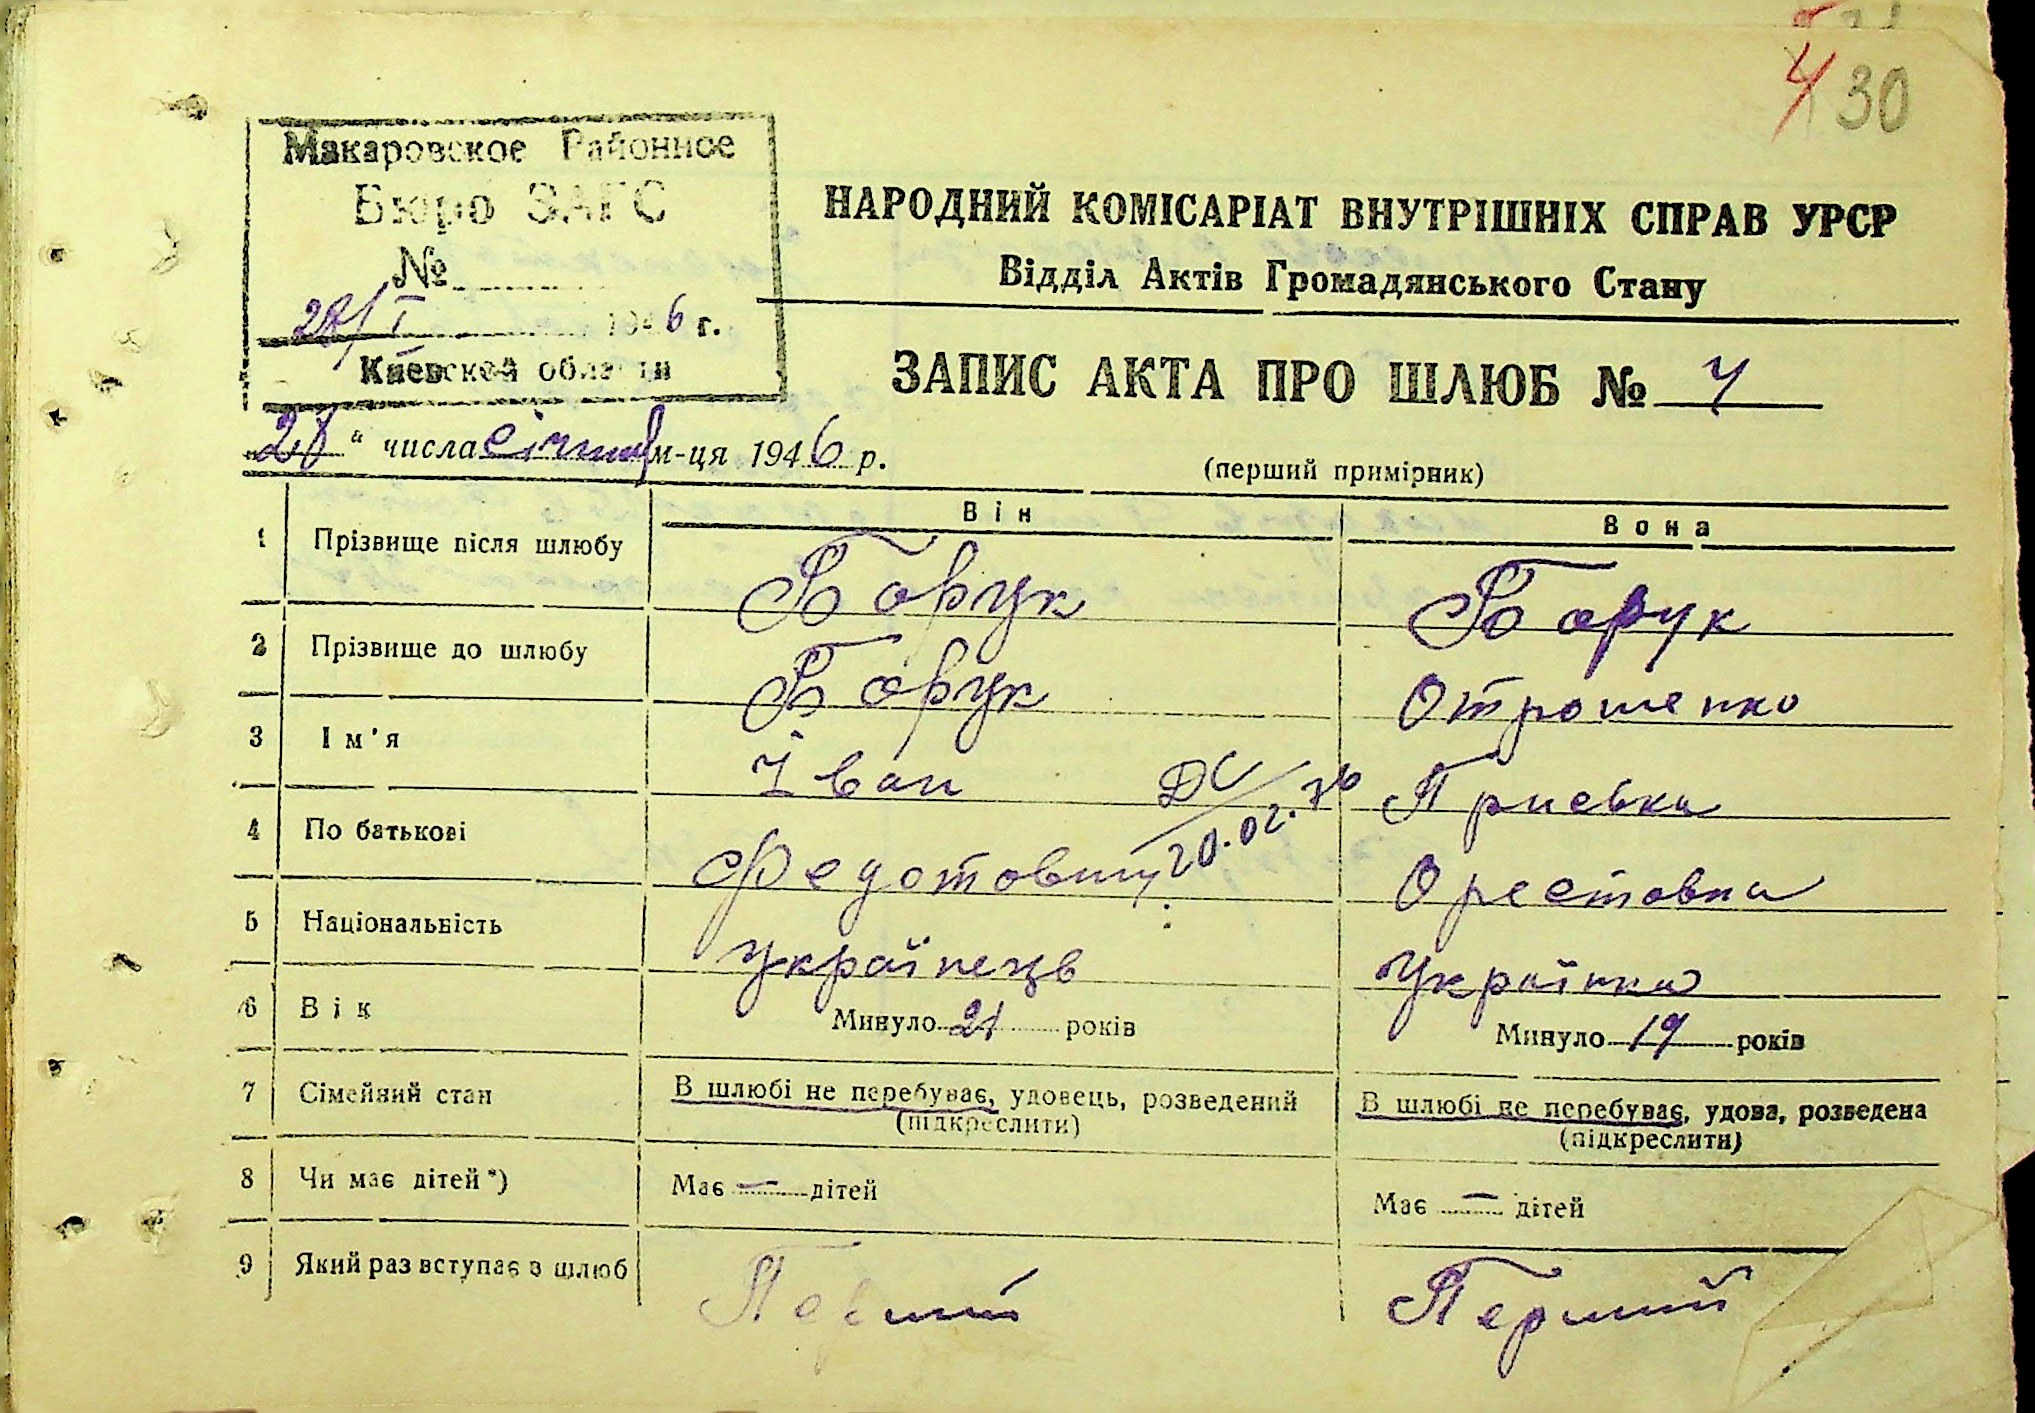 4 30
Макаровское Районное
Бюро ЗАГС
№
28/I 1946 г.
Киевской области
НАРОДНИЙ КОМІСАРІАТ ВНУТРІШНІХ СПРАВ УРСР
Відділ Актів Громадянського Стану
ЗАПИС АКТА ПРО ШЛЮБ № 4
28 " числа січня м-ця 1946 р.
(перший примірник)
Він Вона
1 Прізвище після шлюбу Борук Борук
2 Прізвище до шлюбу Борук Отрошенко
3 Ім'я Іван
20.02.76
4 По батькові Федотович Орестовна
5 Національність українець українка
6 Вік Минуло 21 років Минуло 19 років
7 Сімейний стан В шлюбі не перебуває, удовець, розведений В шлюбі не перебуває, удова, розведена
(підкреслити) (підкреслити)
8 Чи має дітей*) Має — дітей Має — дітей
9 Який раз вступає в шлюб Перший Перший